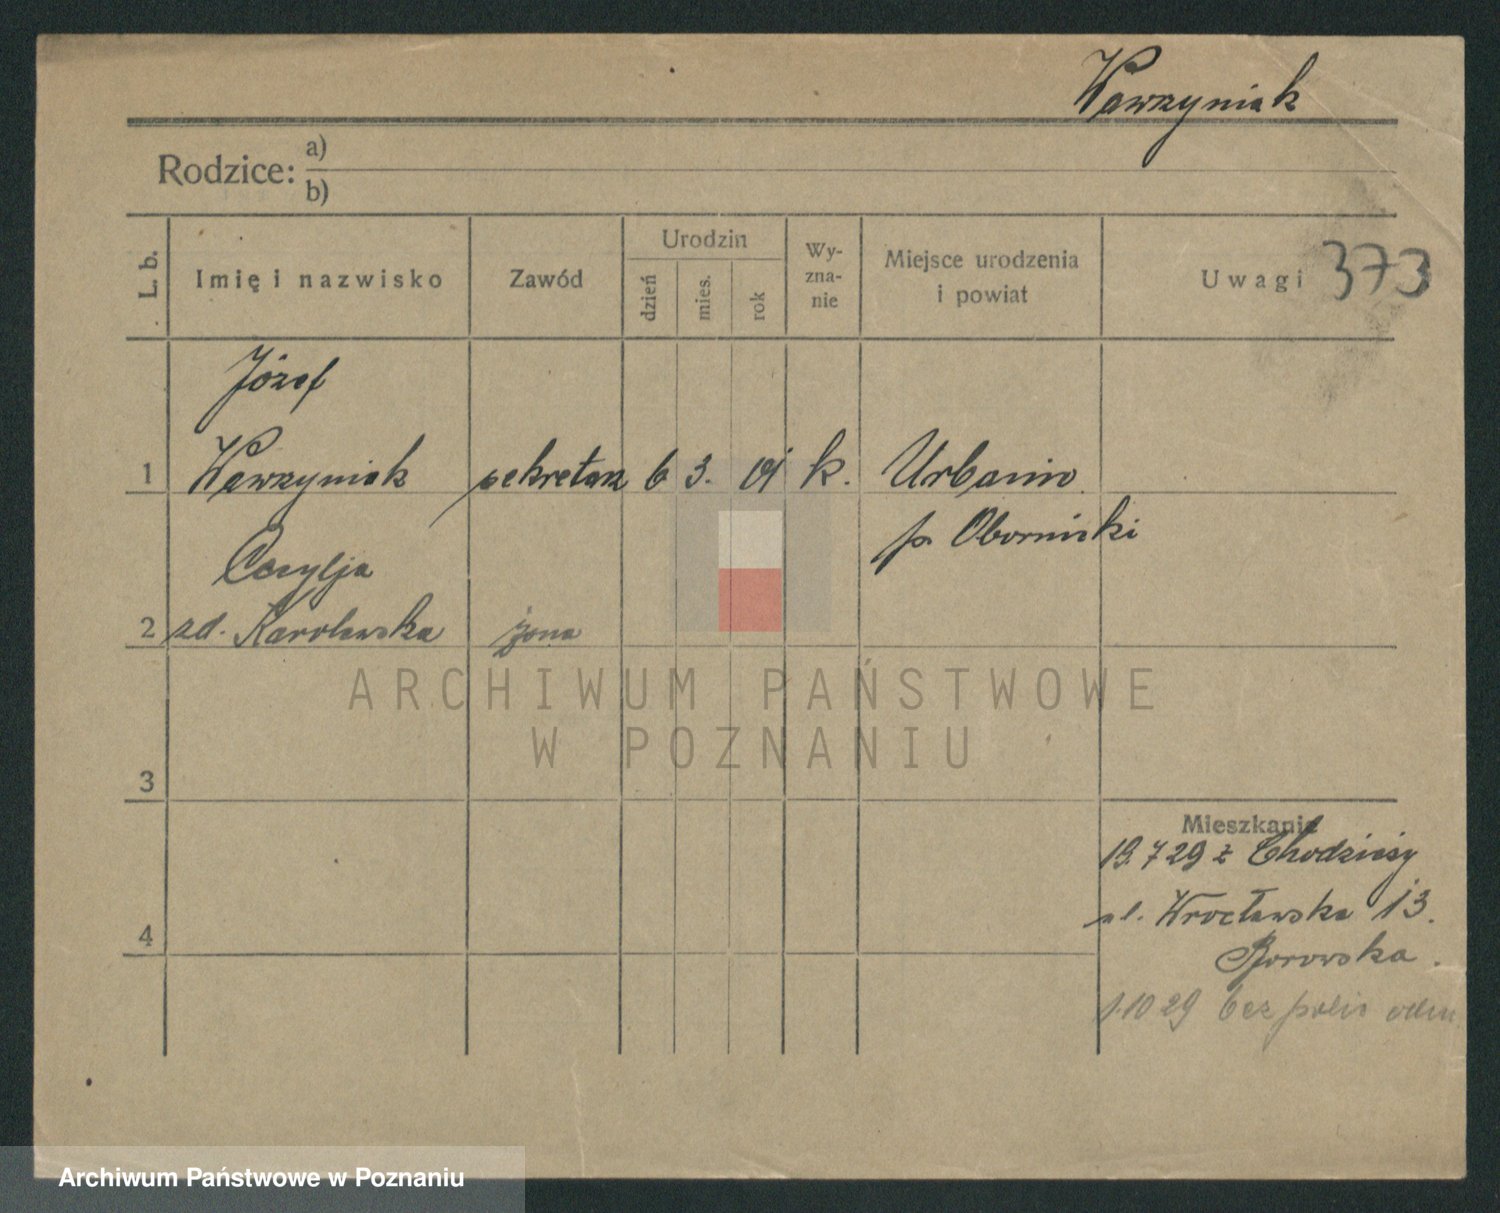 Wawrzyniak
Rodzice: a)
b)
L. b.
Imię i nazwisko
Zawód
Urodzin
dzień
mies.
rok
Wy-
zna-
nie
Miejsce urodzenia
i powiat
Uwagi 373
Józef
1 Wawrzyniak sekretarz 6 3. 01 k. Urbanie
p. Obornicki
Cecylja
2 zd. Karolewska żona
3
4
Mieszkanie
19.7 29 z Chodzieży
ul. Wrocławska 13.
Borowska.
1.10 29 bez polic
ARCHIWUM PAŃSTWOWE
W POZNANIU
Archiwum Państwowe w Poznaniu